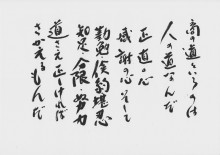 商の道というのは
人の道なんだ
正直の心
感謝の心そして
勤勉倹約堪忍
知足分限努力
道さえ正しければ
さかえるもんだ